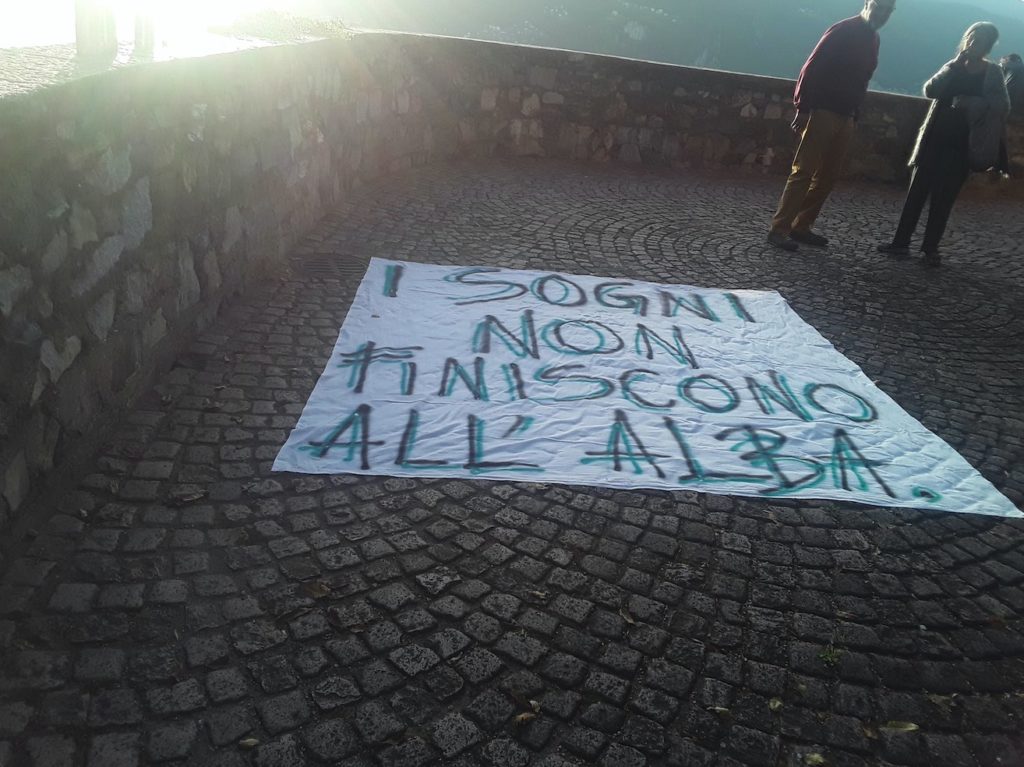 I SOGNI
NON
FINISCONO
ALL' ALBA.